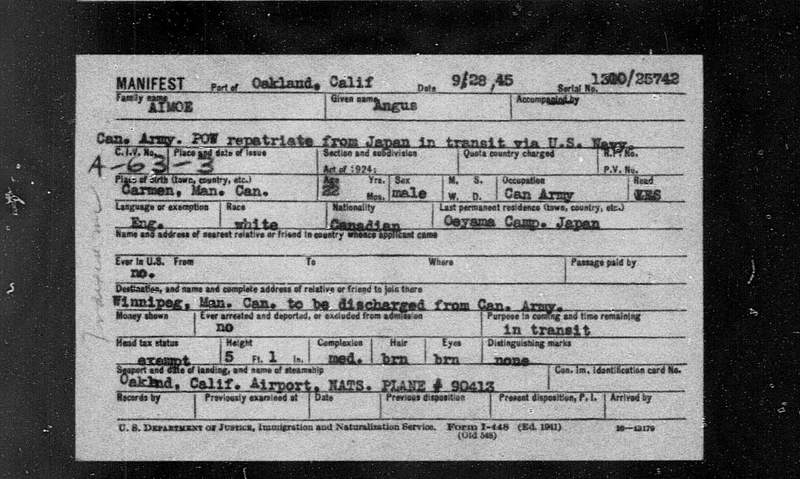 MANIFEST Part of Oakland, Calif Date 9/28,45 Serial No. 1300/25742
Family name AIMOE Given name Angus Accompanied by
Can. Army. POW repatriate from Japan in transit via U.S. Navy.
C.I.V. No. Place and date of issue Section and subdivision Quota country charged R.P. No.
A-63-3 Act of 1924: P.V. No.
Place of birth (town, country, etc.) Age Yrs. Sex M. S. Occupation Read
Carmen, Man. Can. 22 Mos. male W. D. Can Army YES
Language or exemption Race Nationality Last permanent residence (town, country, etc.)
Eng. white Canadian Oeyama Camp. Japan
Name and address of nearest relative or friend in country whence applicant came
Ever in U.S. From To Where Passage paid by
no.
Destination, and name and complete address of relative or friend to join there
Winnipeg, Man. Can. to be discharged from Can. Army.
Money shown Ever arrested and deported, or excluded from admission Purpose in coming and time remaining
no in transit
Head tax status Height Complexion Hair Eyes Distinguishing marks
exempt 5 Ft. 1 In. med. brn brn none
Seaport and date of landing, and name of steamship Con. Im. Identification card No.
Oakland, Calif. Airport, NATS. PLANE # 90413
Records by Previously examined at Date Previous disposition Present disposition, P. I. Arrived by
U. S. DEPARTMENT OF JUSTICE, Immigration and Naturalization Service. Form I-448 (Ed. 1941) 16—13179
(Old 548)